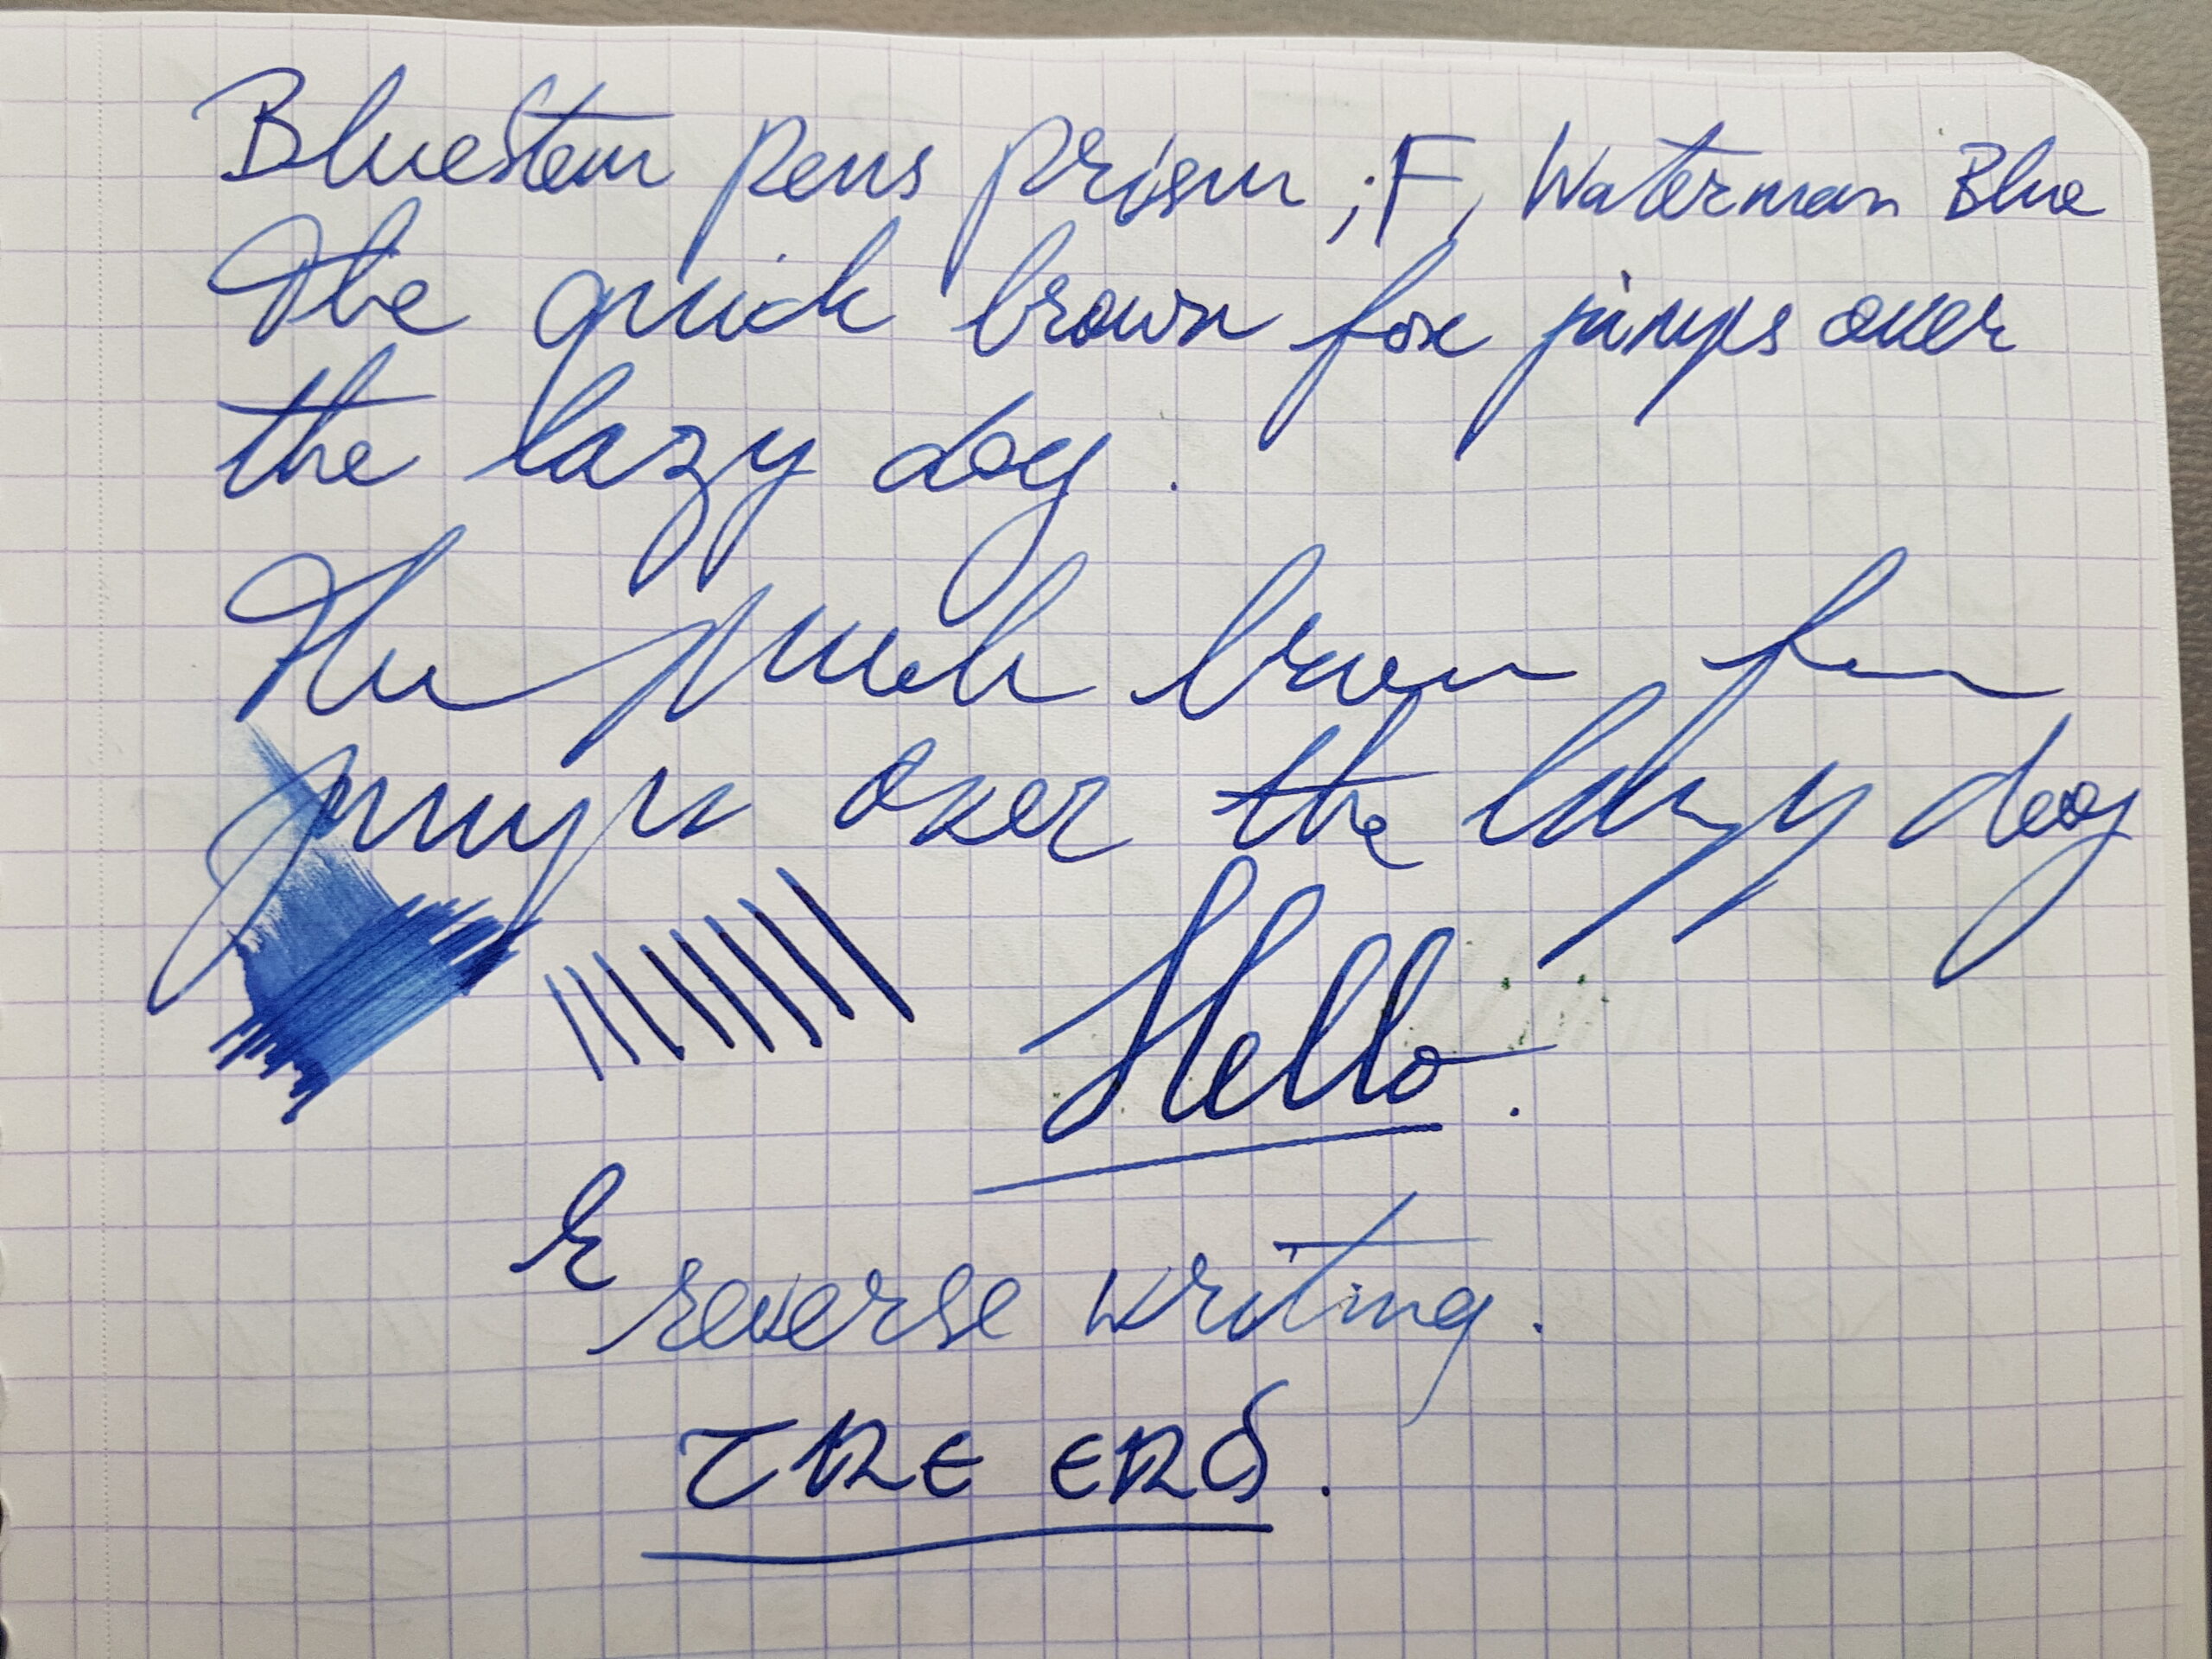 BlueStem pens prism ; F, Waterman Blue
The quick brown fox jumps over
the lazy dog .
The quick brown fox
jumps over the lazy dog
Hello .
reverse writing .
THE END .